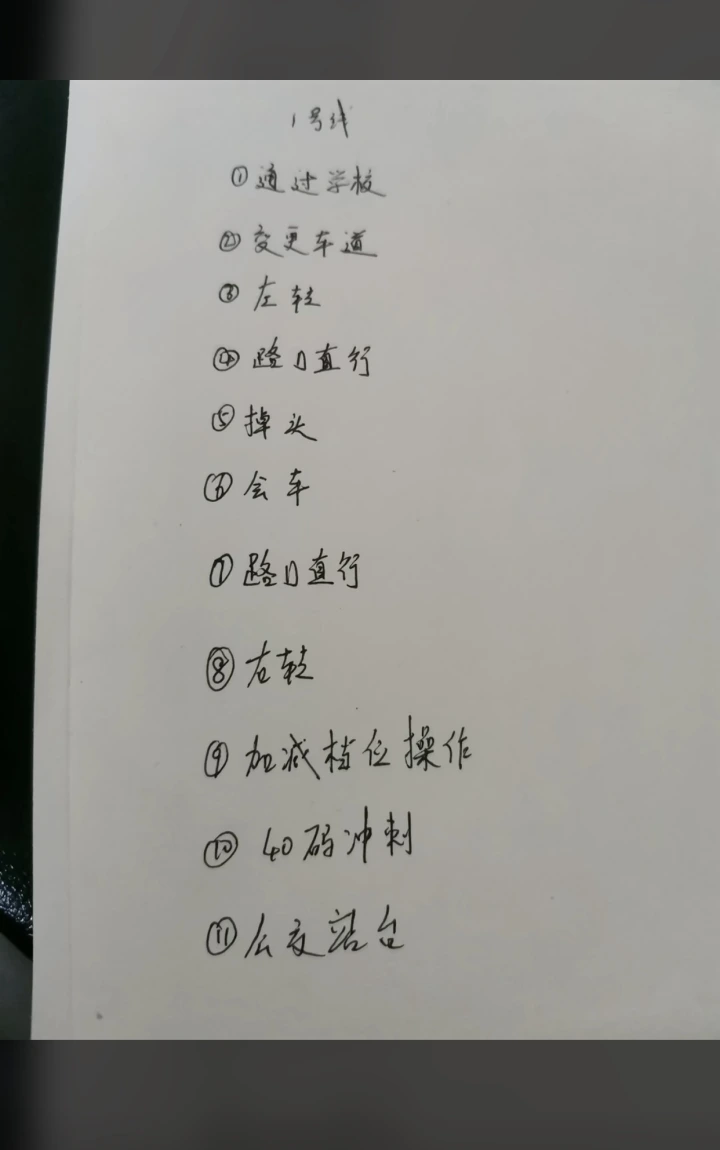 1号线
①通过学校
②变更车道
③左转
④路口直行
⑤掉头
⑥会车
⑦路口直行
⑧右转
⑨加减档位操作
⑩40码冲刺
⑪公交站台